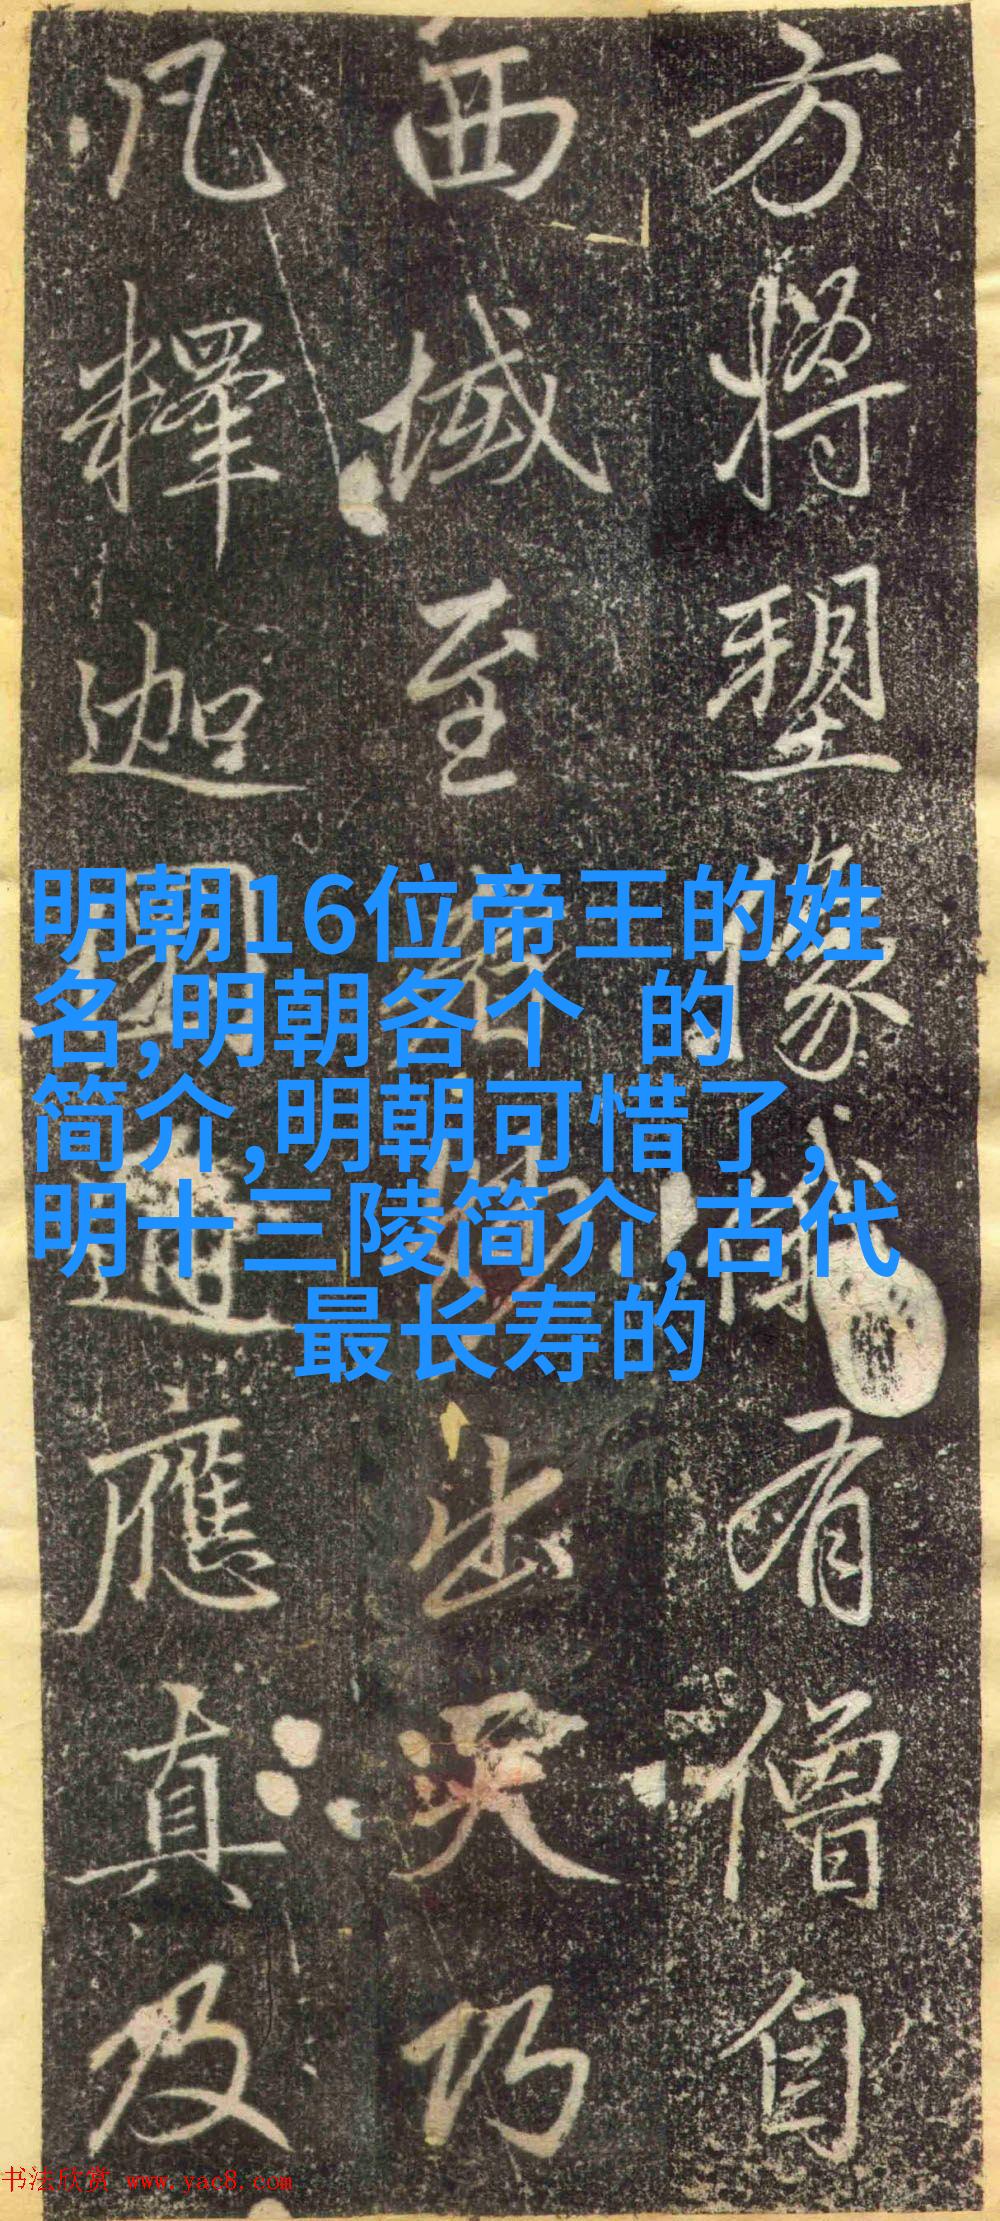 方將塑像儀有僧自
西域至出天乃
凡釋迦通應真及
明朝16位帝王的姓
名,明朝各个 的
简介,明朝可惜了,
明十三陵简介,古代
最长寿的
书法欣赏 www.yac8.com